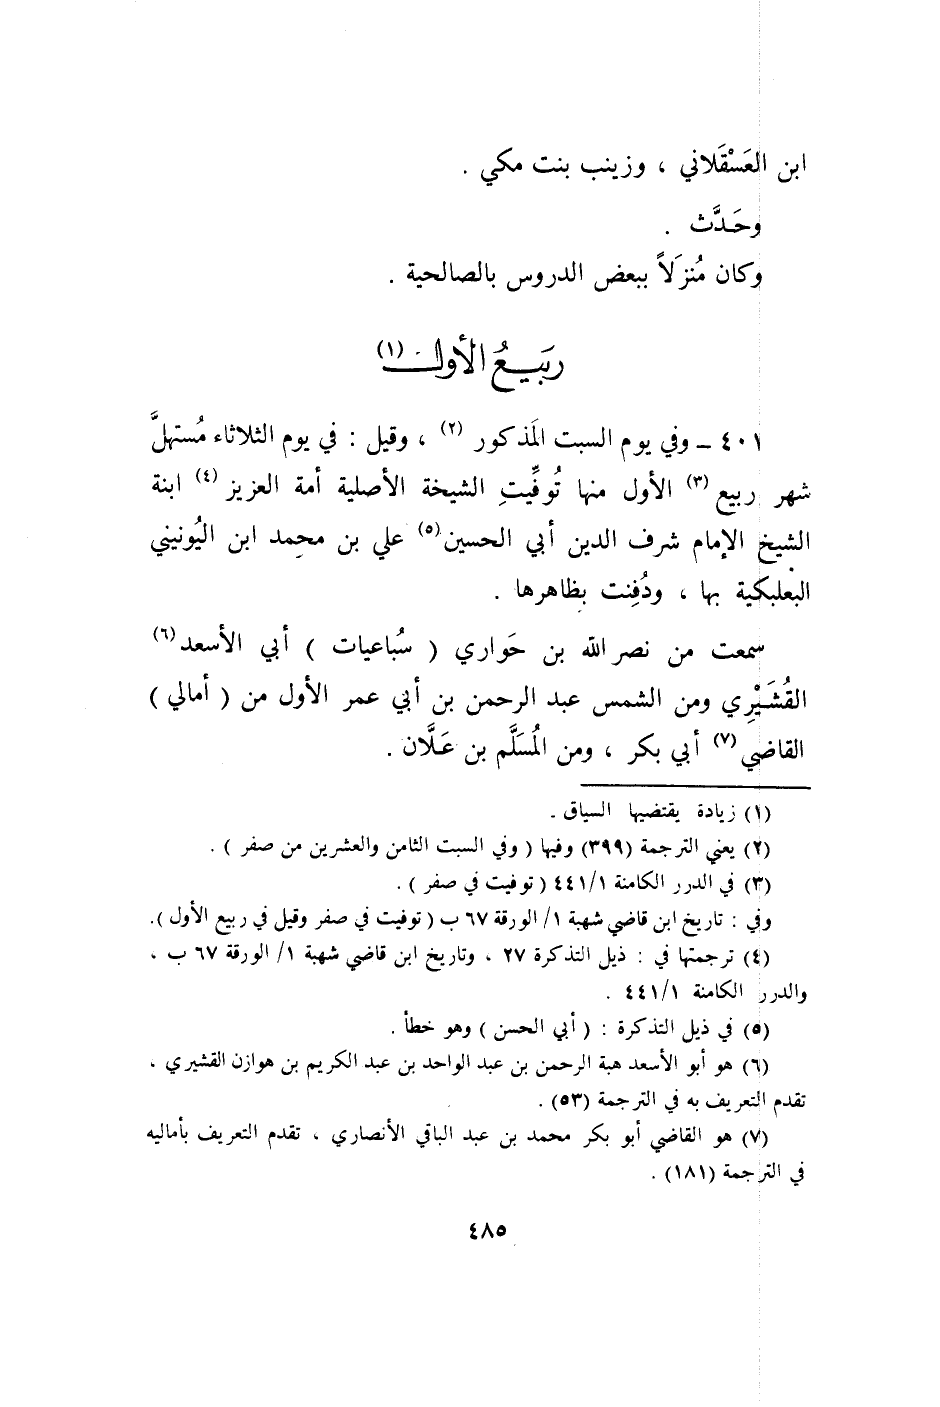 ابن العَسْقَلاني ، وزينب بنت مكي .
وحَدَّث .
وكان مُنزَلاً ببعض الدروس بالصالحية .
رَبيعُ الأول (١)
٤٠١ ـ وفي يوم السبت المَذكور (٢) ، وقيل : في يوم الثلاثاء مُستهلَّ
شهر ربيع (٣) الأول منها تُوفِّيتِ الشيخة الأصلية أمة العزيز (٤) ابنة
الشيخ الإمام شرف الدين أبي الحسين (٥) علي بن محمد ابن اليُونيني
البعلبكية بها ، ودُفِنت بظاهرها .
سمعت من نصر الله بن حَواري ( سُباعيات ) أبي الأسعد (٦)
القُشَيْرِي ومن الشمس عبد الرحمن بن أبي عمر الأول من ( أمالي )
القاضي (٧) أبي بكر ، ومن المُسَلَّم بن عَلَّان .
(١) زيادة يقتضيها السياق .
(٢) يعني الترجمة (٣٩٩) وفيها ( وفي السبت الثامن والعشرين من صفر ) .
(٣) في الدرر الكامنة ٤٤١/١ ( توفيت في صفر ) .
وفي : تاريخ ابن قاضي شهبة ١/ الورقة ٦٧ ب ( توفيت في صفر وقيل في ربيع الأول ).
(٤) ترجمتها في : ذيل التذكرة ٢٧ ، وتاريخ ابن قاضي شهبة ١/ الورقة ٦٧ ب ،
والدرر الكامنة ٤٤١/١ .
(٥) في ذيل التذكرة : ( أبي الحسن ) وهو خطأ .
(٦) هو أبو الأسعد هبة الرحمن بن عبد الواحد بن عبد الكريم بن هوازن القشيري ،
تقدم التعريف به في الترجمة (٥٣) .
(٧) هو القاضي أبو بكر محمد بن عبد الباقي الأنصاري ، تقدم التعريف بأماليه
في الترجمة (١٨١) .
٤٨٥